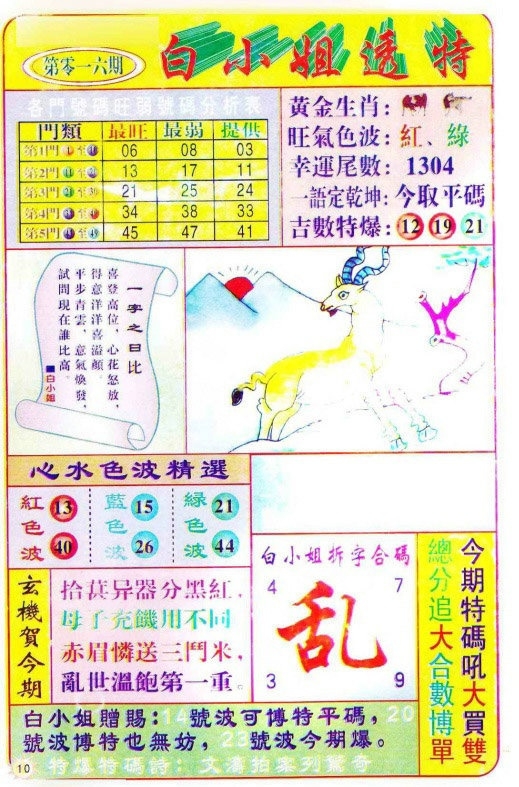 第零一六期
白小姐透特
各門號碼旺弱號碼分析表
門類 最旺 最弱 提供
第1門 1 至 9 06 08 03
第2門 至 13 17 11
第3門 至 21 25 24
第4門 至 34 38 33
第5門 至 49 45 47 41
黃金生肖:
旺氣色波:紅、綠
幸運尾數:1304
一語定乾坤:今取平碼
吉數特爆:12 19 21
一字之曰比
喜登高位,心花怒放,
得意洋洋喜溢顏
平步青雲,意氣煥發,
試問現在誰比高。
■白小姐
心水色波精選
紅色波 13 40
藍色波 15 26
綠色波 21 44
玄機賀今期
拾葚异器分黑紅,
母子充饑用不同
赤眉憐送三鬥米,
亂世溫飽第一重。
白小姐拆字合碼
4 7
乱
3 9
今期特碼吼大買雙
總分追大合數博單
白小姐贈賜:14號波可博特平碼,20
號波博特也無妨,23號波今期爆。
特爆特碼詩:文濤拍案列驚奇
10